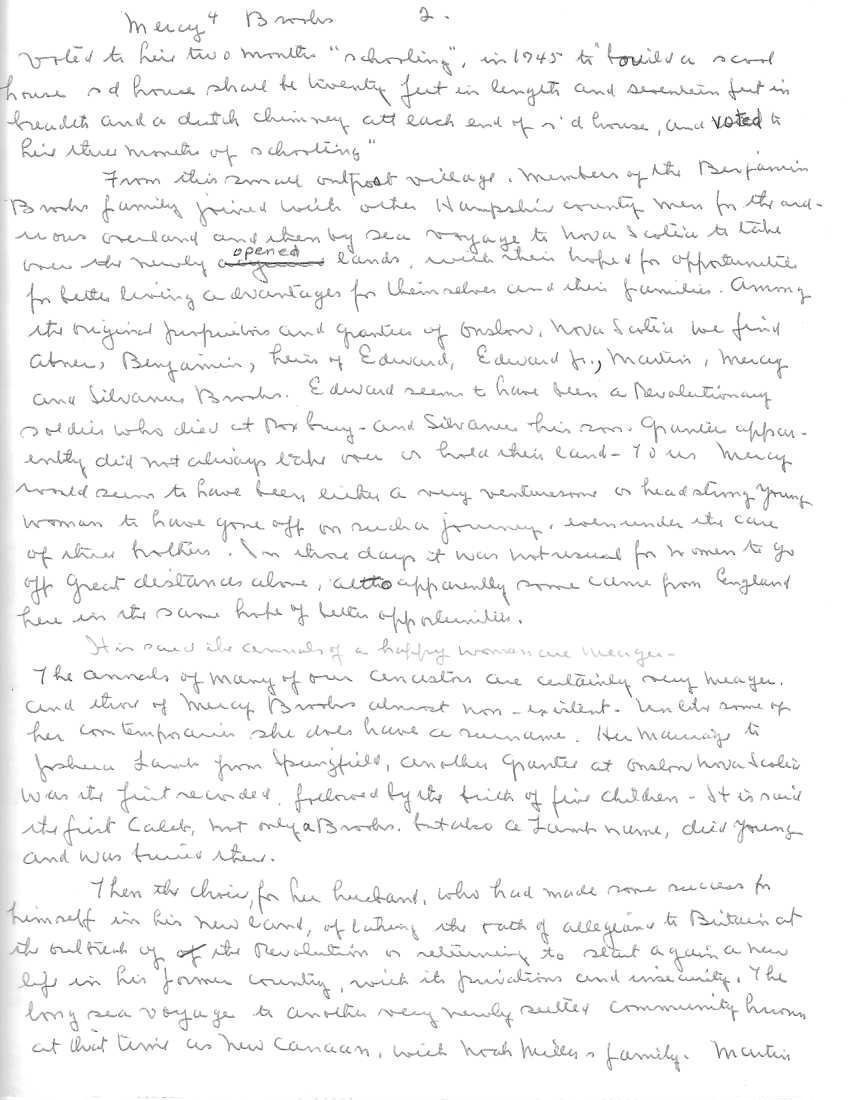 Mercy⁴ Brooks 2.
voted to hire two months "schooling", in 1745 to "build a scool
house sd house shall be twenty feet in length and seventeen feet in
breadth and a dutch chimney att each end of s'd house, and voted to
hire three months of schooling"
From this small outpost village, members of the Benjamin
Brooks family joined with other Hampshire county men for the ard-
uous overland and then by sea voyage to Nova Scotia to take
over the newly opened lands, with their hopes for opportunities
for better living advantages for themselves and their families. Among
the original proprietors and grantees of Onslow, Nova Scotia we find
Abner, Benjamin, heirs of Edward, Edward Jr., Martin, Mercy
and Silvanus Brooks. Edward seems to have been a Revolutionary
soldier who died at Roxbury - and Silvanus his son. Grantees appar-
ently did not always take over or hold their land - To us Mercy
would seem to have been either a very venturesome or headstrong young
woman to have gone off on such a journey, even under the care
of three brothers. In those days it was not usual for women to go
off great distances alone, altho apparently some came from England
here in the same hope of better opportunities.
It is said the annals of a happy woman are meager -
The annals of many of our ancestors are certainly very meager.
and those of Mercy Brooks almost non-existent. Unlike some of
her contemporaries she does have a surname. Her marriage to
Joshua Lamb from Springfield, another Grantee at Onslow Nova Scotia
was the first recorded, followed by the birth of five children - It is said
the first Caleb, not only a Brooks, but also a Lamb name, died young
and was buried there.
Then the choice, for her husband, who had made some success for
himself in his new land, of taking the oath of allegiance to Britain at
the outbreak of the Revolution or returning to start again a new
life in his former country, with its privations and insecurity. The
long sea voyage to another very newly settled community known
at that time as New Canaan, with Noah Millers family. Martin